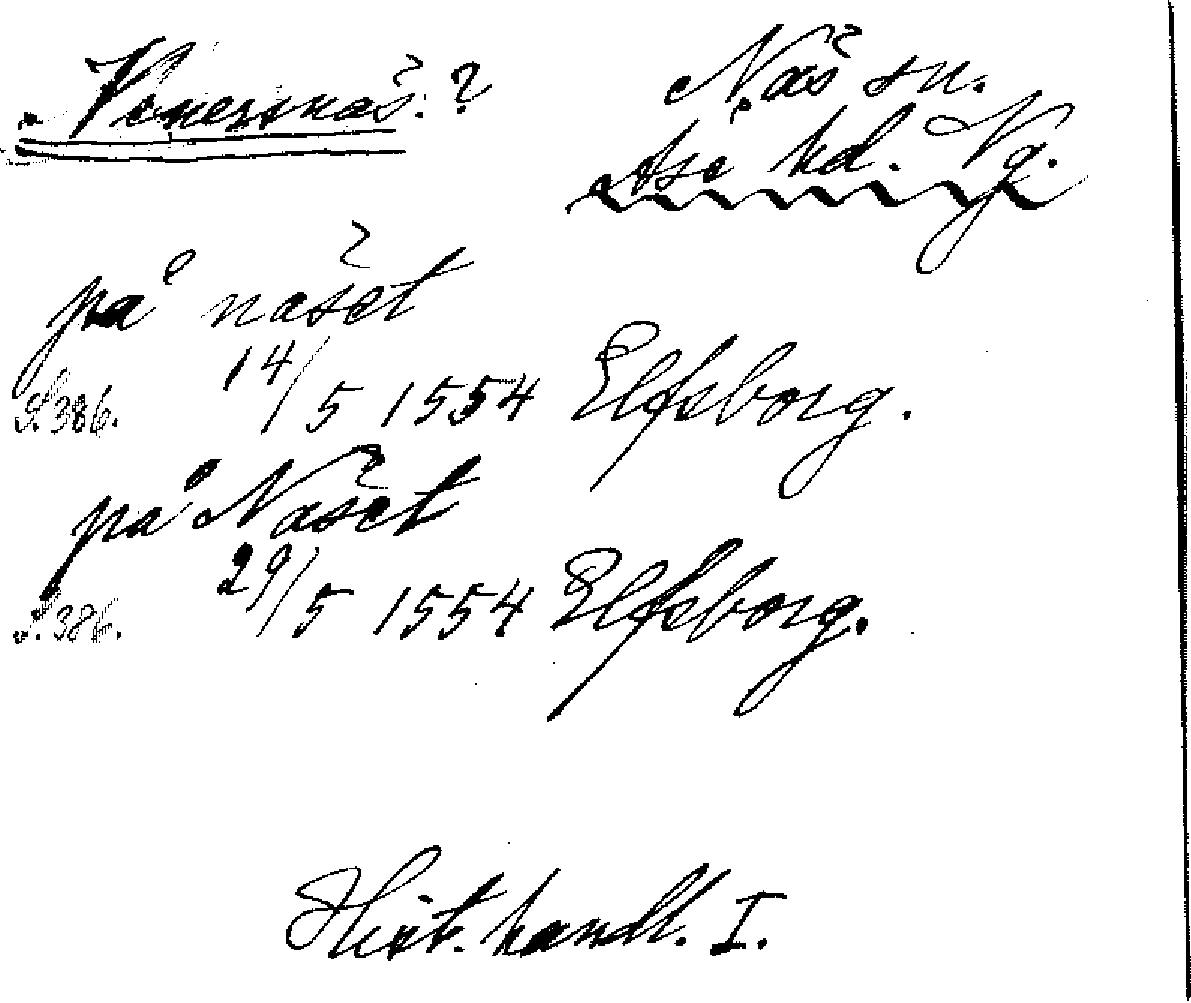 Venersnäs.?
Näs sn.
Åse hd. Vg.
på näset
S. 386. 14/5 1554 Elfsborg.
på Näset
S. 386. 29/5 1554 Elfsborg.
Hist. handl. I.